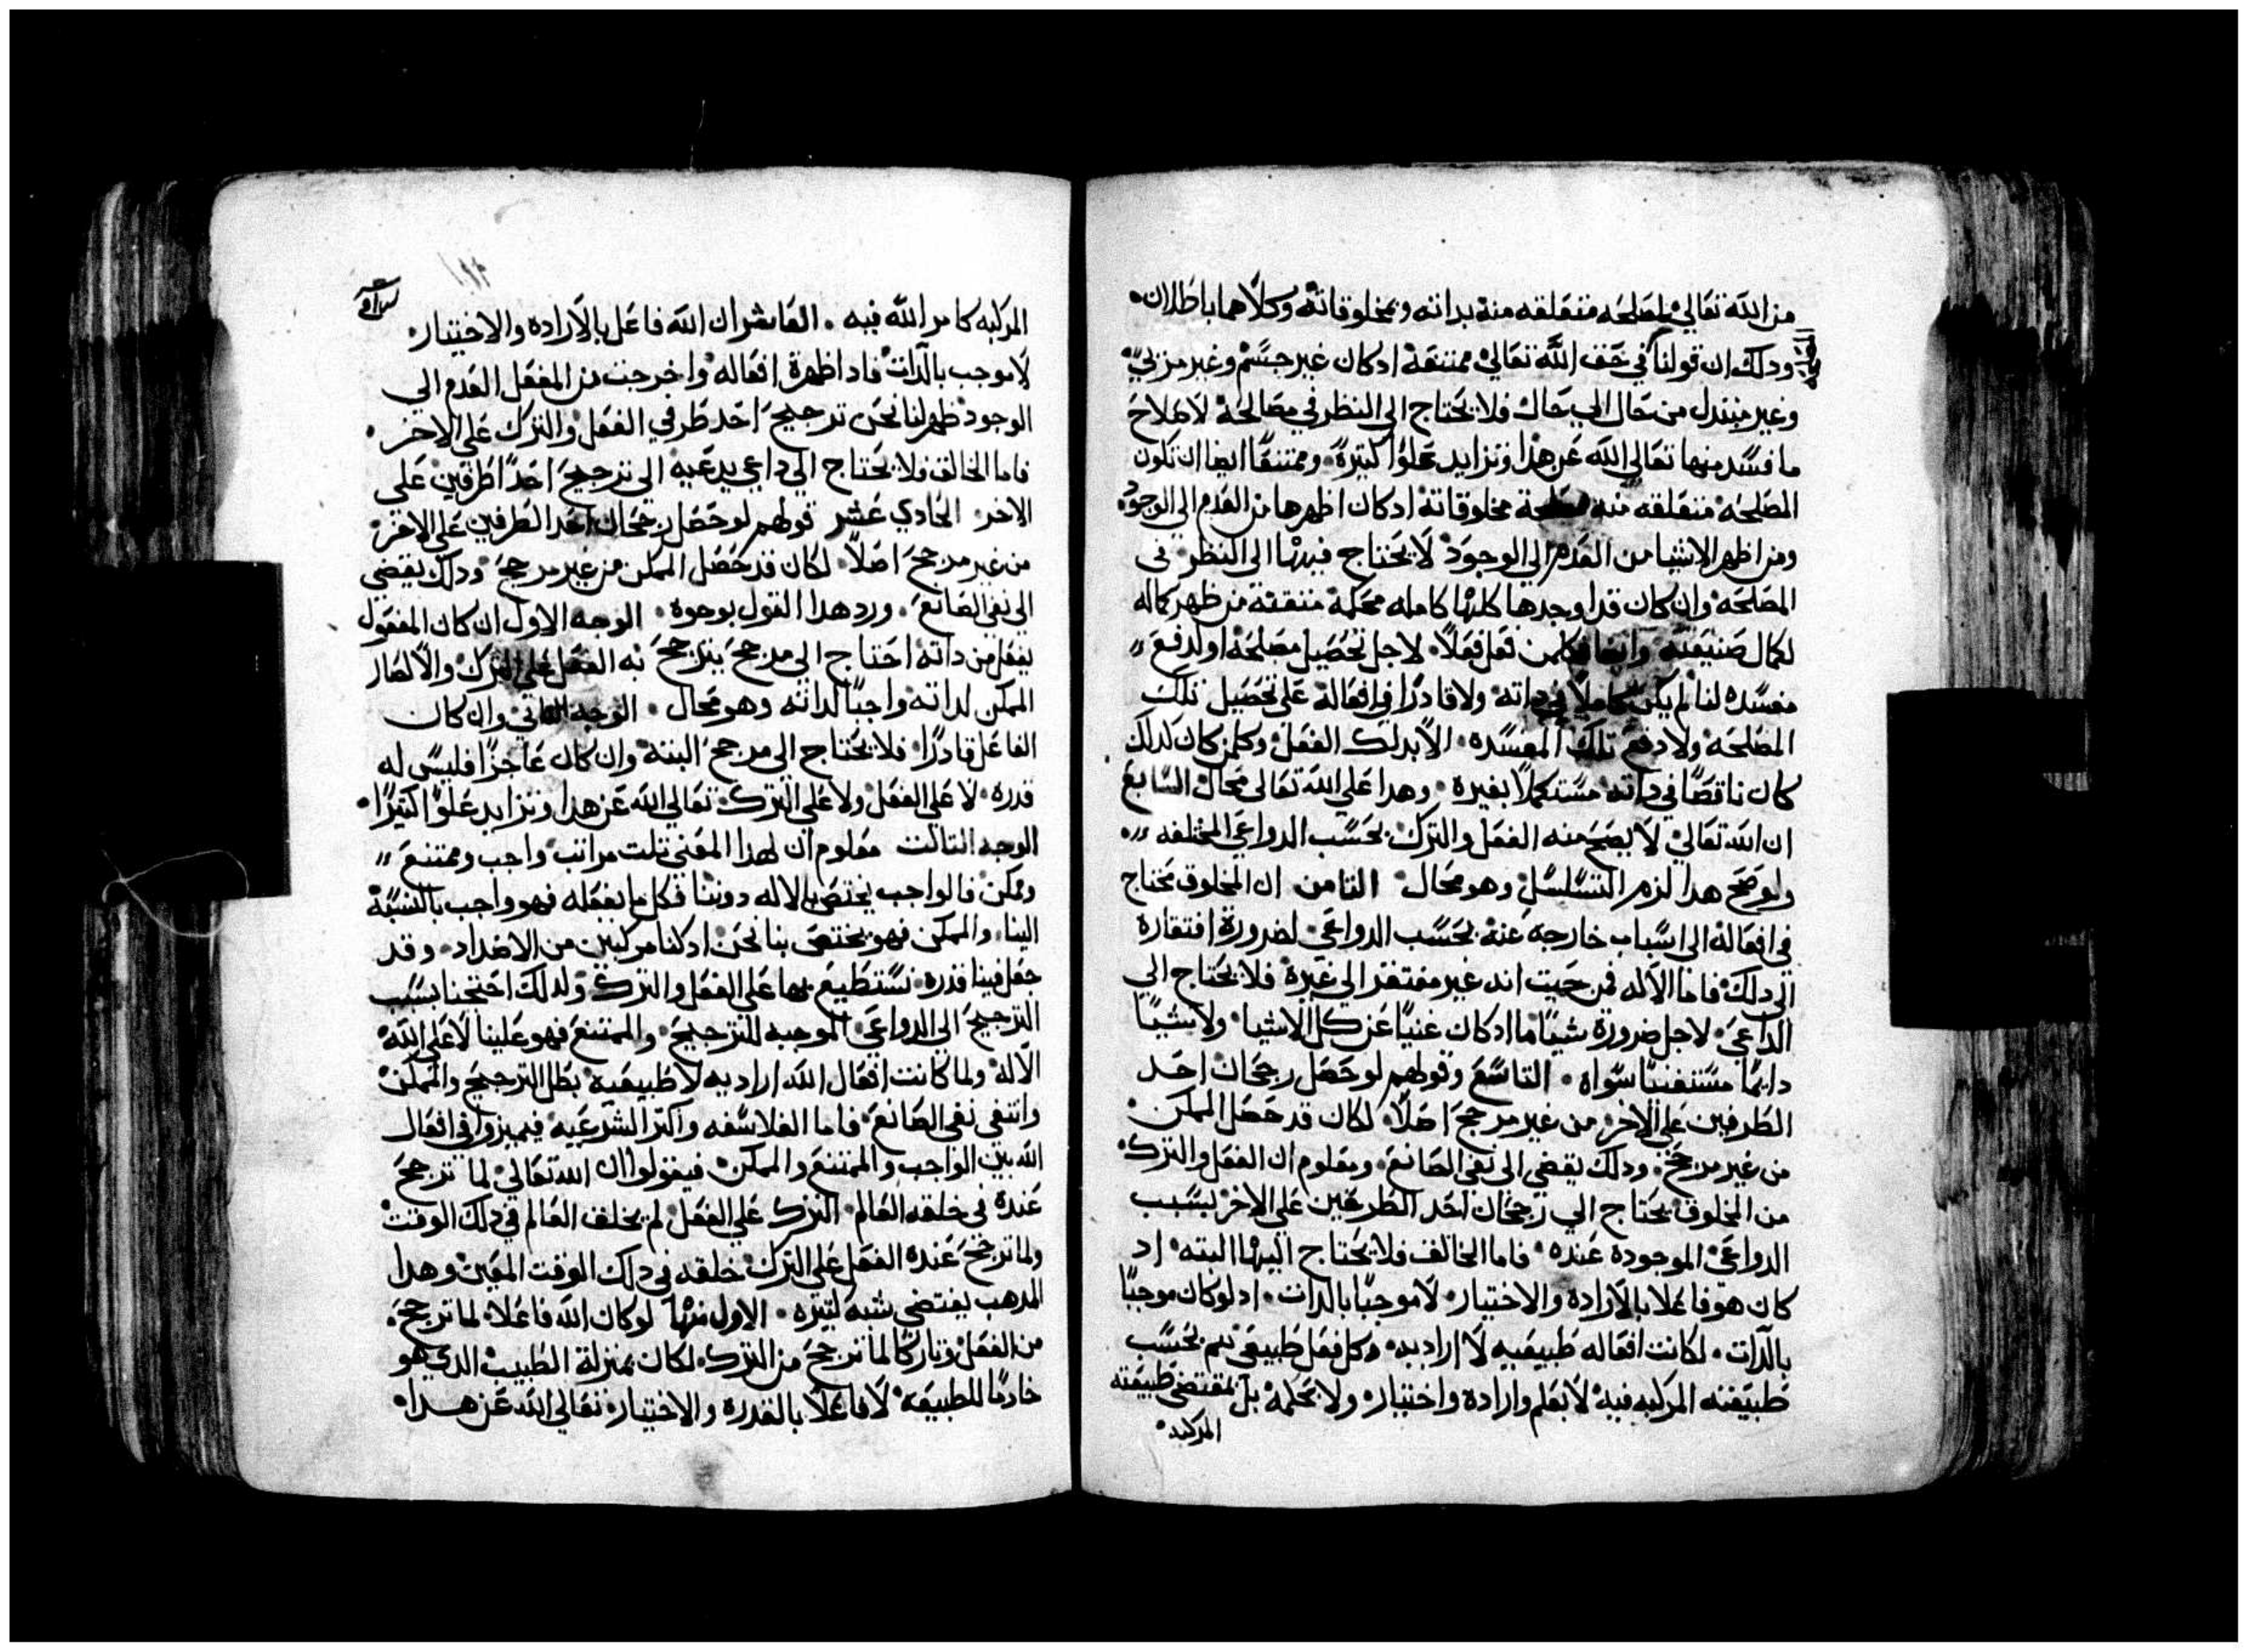 من الله تعالي لمصلحه متعلقه منه بداته وبمخلوقاته وكلاهما باطلان
ودلك ان قولنا في حق الله تعالي ممتنعة ادكان غير جسم وغير مري
وغير متبدل من حال الي حال فلا يحتاج الي النظر في مصالحة لاصلاح
ما فسد منها تعالي الله عن هدا وتزايد علوا كتيرة وممتنعا ايضا ان تكون
المصلحه متعلقه منه مخلوقاتة ادكان اظهرها من العدم الي الوجود
ومن اظهر الاشيا من العدم الي الوجود لا يحتاج فيها الي النظر في
المصلحه وان كان قد اوجدها كلها كامله محكمة متقنة من ظهر كماله
لكمال صنيعته وايضا فكلمن فعل فعلا لاجل تحصيل مصلحه او لدفع
مفسده لنا لم يكن كاملا في داته ولا قادرا في افعاله علي تحصيل تلك
المصلحه ولا دفع تلك المفسده الا بدلك الفعل وكلمن كان كدلك
كان ناقصا في داته مستكملا بغيره وهدا علي الله تعالي محال السابع
ان الله تعالي لا يصح منه الفعل والترك بحسب الدواعي المختلفه
ولو صح هدا لزم التسلسل وهو محال الثامن ان المخلوق محتاج
في افعاله الي اسباب خارجة عنه بحسب الدواعي لضرورة افتقاره
الي دلك فاما الاله فمن حيت انه غير مفتقر الي غيرة فلا يحتاج الي
الداعي لاجل ضرورة شيا ما ادكان غنيا عن كل الاشيا ولا يشيا
دايما مستغنيا سواه التاسع وقولهم لو حصل رجحان احد
الطرفين علي الاخر من غير مرجح اصلا لكان قد حصل الممكن
من غير مرجح ودلك يقضي الي نفي الصانع ومعلوم ان الفعل والترك
من المخلوق يحتاج الي رجحان احد الطرفين علي الاخر بسبب
الدواعي الموجودة عنده فاما الخالق فلا يحتاج اليها البته اد
كان هو فاعلا بالارادة والاختيار لا موجبا بالدات اد لو كان موجبا
بالدات لكانت افعاله طبيعيه لا اراديه وكل فعل طبيعي يتم بحسب
طبيعته المركبه فيه لا بعلم وارادة واختيار ولا بحكمة بل بمقتضي طبيعته
المركبه
المركبه كامر الله فيه العاشر ان الله فاعل بالارادة والاختيار
لا موجب بالدات فادا ظهرة افعاله واخرجت من العدم الي
الوجود ظهر لنا نحن ترجيح احد طرفي الفعل والترك علي الاخر
فاما الخالق فلا يحتاج الي داعي يدعيه الي ترجيح احد اطرقين علي
الاخر الحادي عشر قولهم لو حصل رجحان احد الطرفين علي الاخر
من غير مرجح اصلا لكان قد حصل الممكن من غير مرجح ودلك يقضي
الي نفي الصانع ورد هدا القول بوجوه الوجه الاول ان كان المفعول
يفعل من داته احتاج الي مرجح يترجح به الفعل علي الترك والا لصار
الممكن لداته واجبا لداته وهو محال الوجه الثاني وان كان
الفاعل قادرا فلا يحتاج الي مرجح البته وان كان عاجزا فليس له
قدره لا علي الفعل ولا علي الترك تعالي الله عن هدا وتزايد علوا كتيرا
الوجه التالت معلوم ان لهدا المعني تلت مراتب واجب وممتنع
وممكن فالواجب يختص بالاله دوننا فكل ما يفعله فهو واجب بالنسبة
الينا والممكن فهو يختص بنا نحن ادكنا مركبين من الاضداد وقد
جعل فينا قدره نستطيع بها علي الفعل والترك ولدلك احتجنا بسبب
الترجيح الي الدواعي الموجبه للترجيح والممتنع فهو علينا لا علي الله
الاله ولما كانت افعال الله اراديه لا طبيعية بطل الترجيح والممكن
وانتفي نفي الصانع فاما الفلاسفه واكتر الشرعيه فيميزوا في افعال
الله بين الواجب والممتنع والممكن فيقولوا ان الله تعالي لما ترجح
عنده في خلقه العالم الترك علي الفعل لم يخلق العالم في دلك الوقت
ولما ترجح عنده الفعل علي الترك خلقه في دلك الوقت المعين وهدا
المدهب يقتضي شبه كتيره الاول منها لو كان الله فاعلا لما ترجح
من الفعل وتاركا لما ترجح من الترك لكان بمنزلة الطبيب الدي هو
خادما للطبيعه لا فاعلا بالقدره والاختيار تعالي الله عن هدا